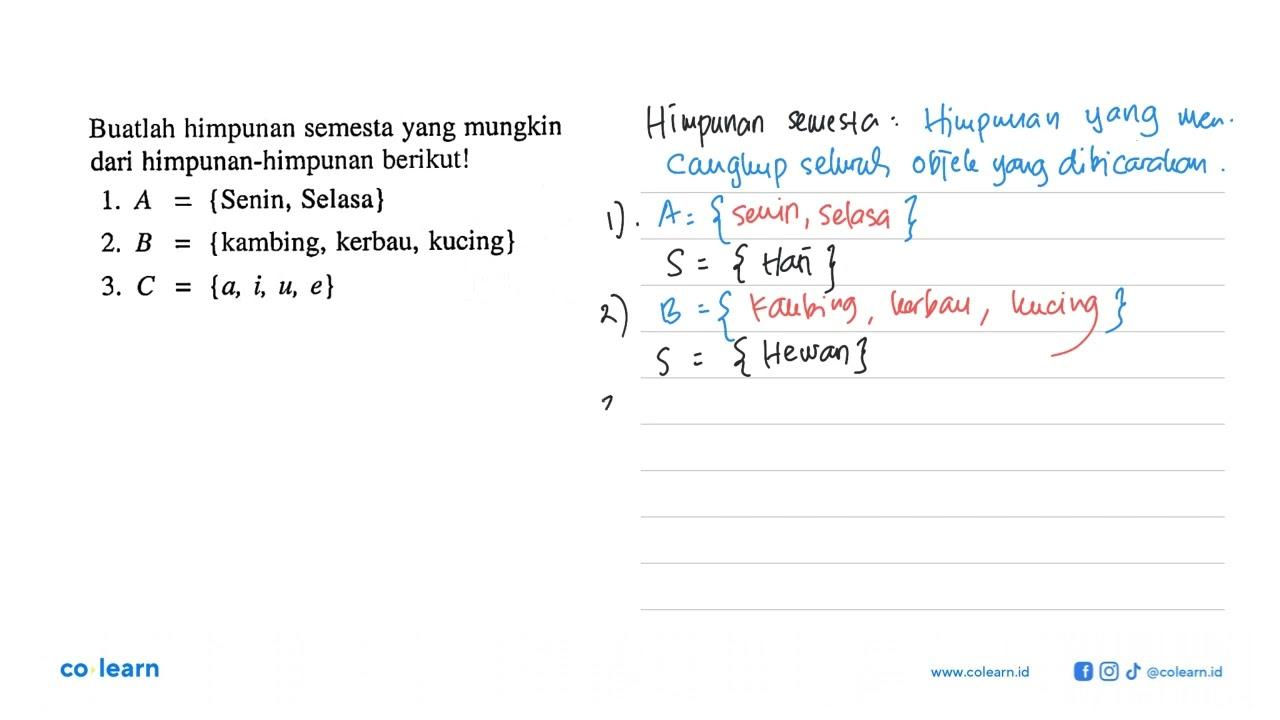 Buatlah himpunan semesta yang mungkin
dari himpunan-himpunan berikut!
1. A = {Senin, Selasa}
2. B = {kambing, kerbau, kucing}
3. C = {a, i, u, e}
Himpunan semesta : Himpunan yang men.
cangkup seluruh objek yang dibicarakan .
1). A = { senin, selasa }
S = { Hari }
2) B = { kambing, kerbau, kucing }
S = { Hewan }
co learn
www.colearn.id @colearn.id